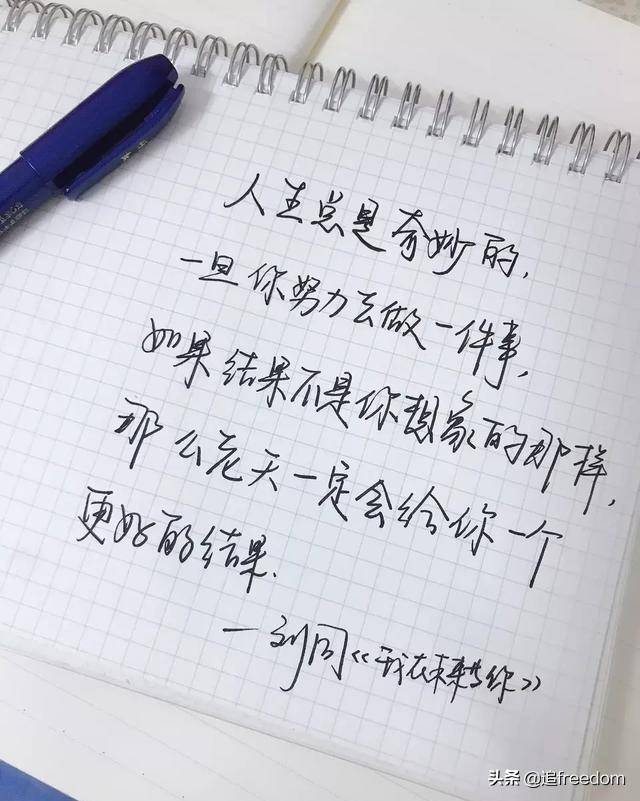 人生总是奇妙的,
一旦你努力去做一件事,
如果结果不是你想象的那样,
那么老天一定会给你一个
更好的结果.
—刘同《我在未来等你》
头条 @追freedom